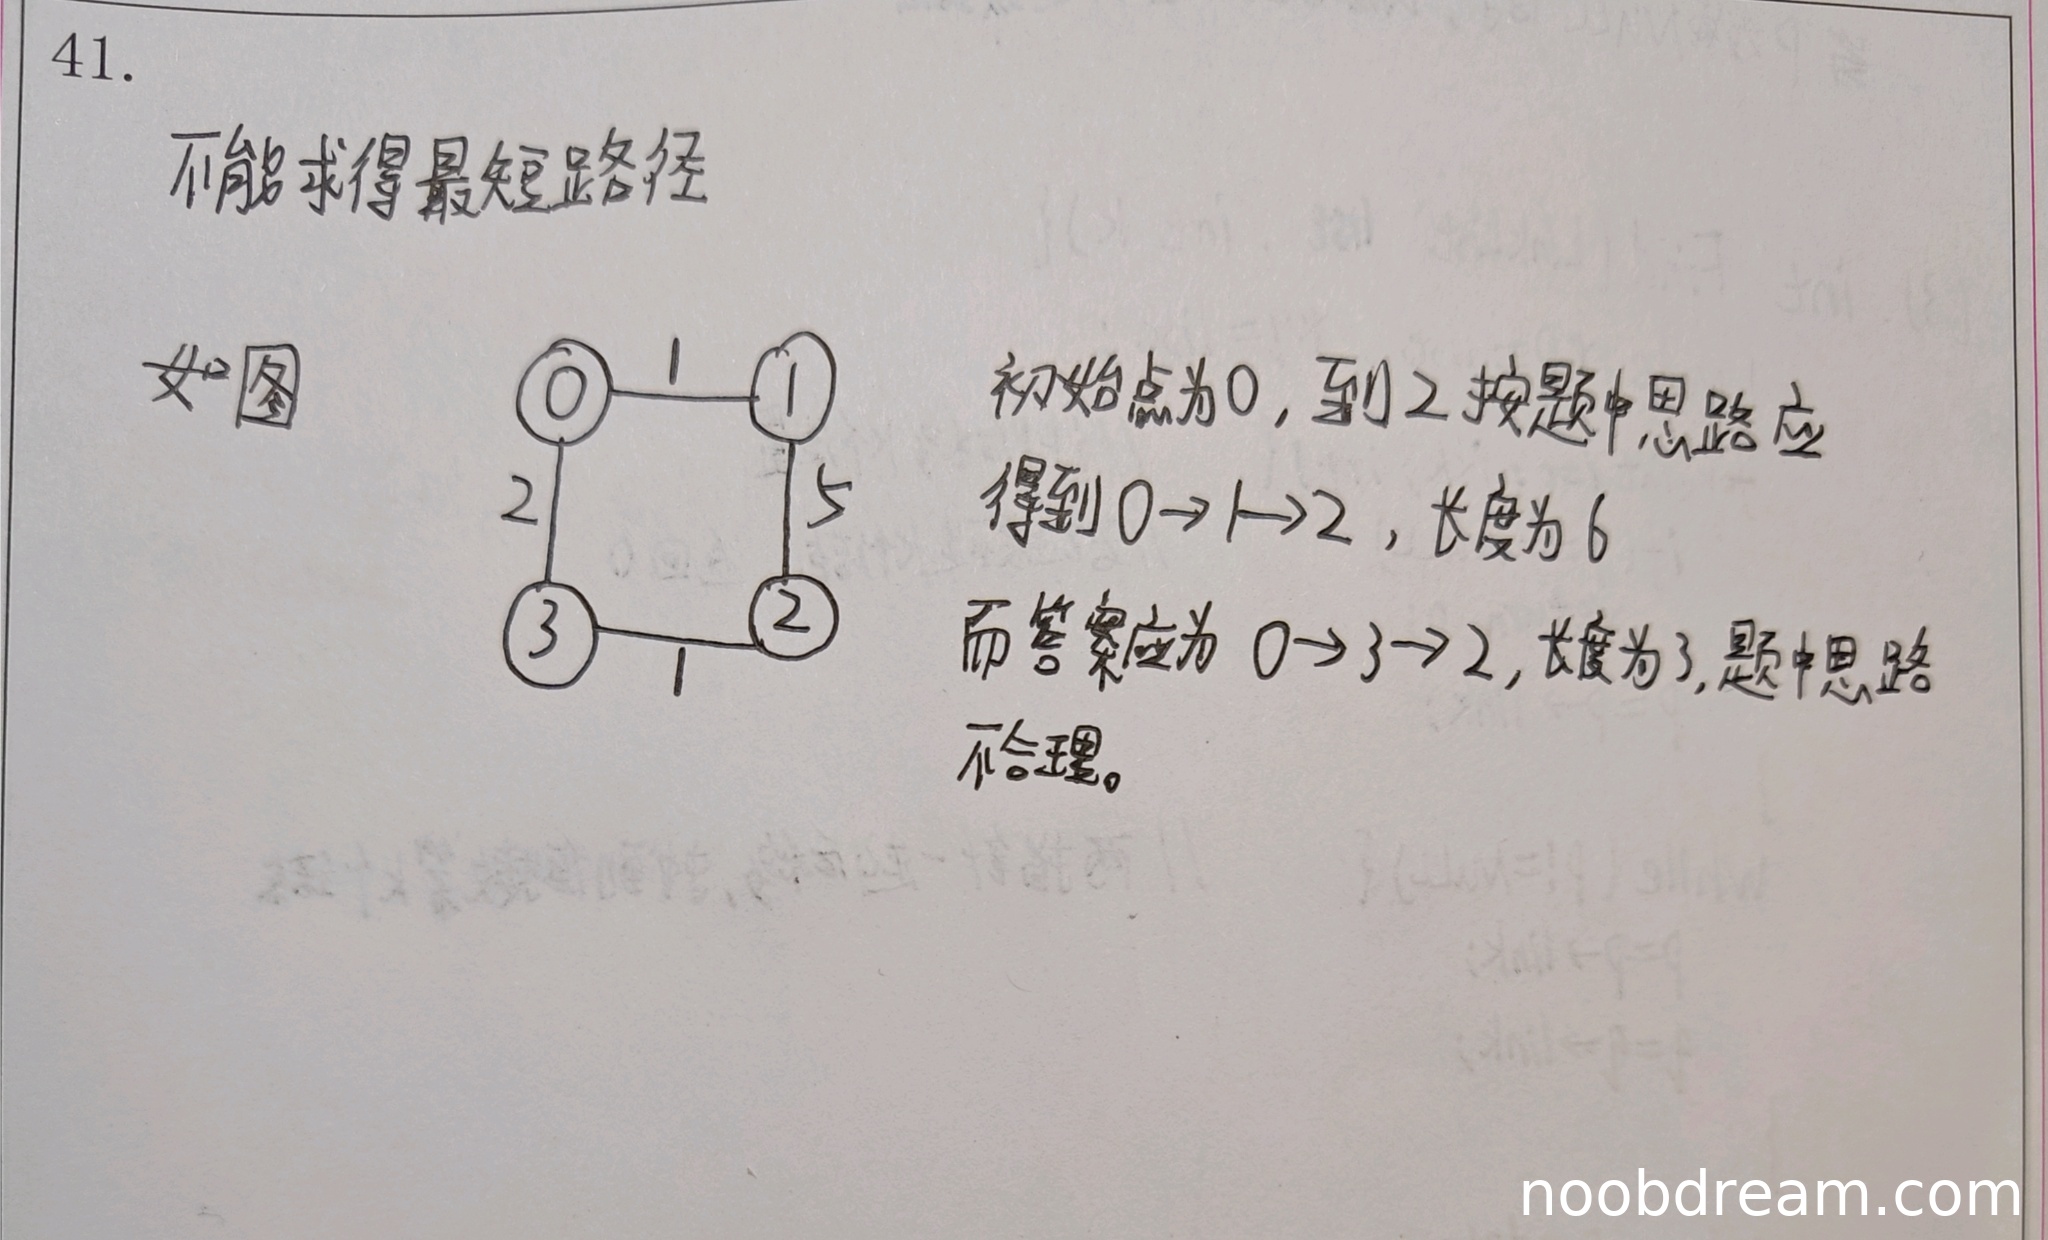 41.
不能求得最短路径
如图
0 1 1
2 5
3 1 2
初始点为0，到2按题中思路应
得到0→1→2，长度为6
而答案应为 0→3→2，长度为3，题中思路
不合理。
while (p!=NULL){
p=p→link;
q=q→link;
noobdream.com